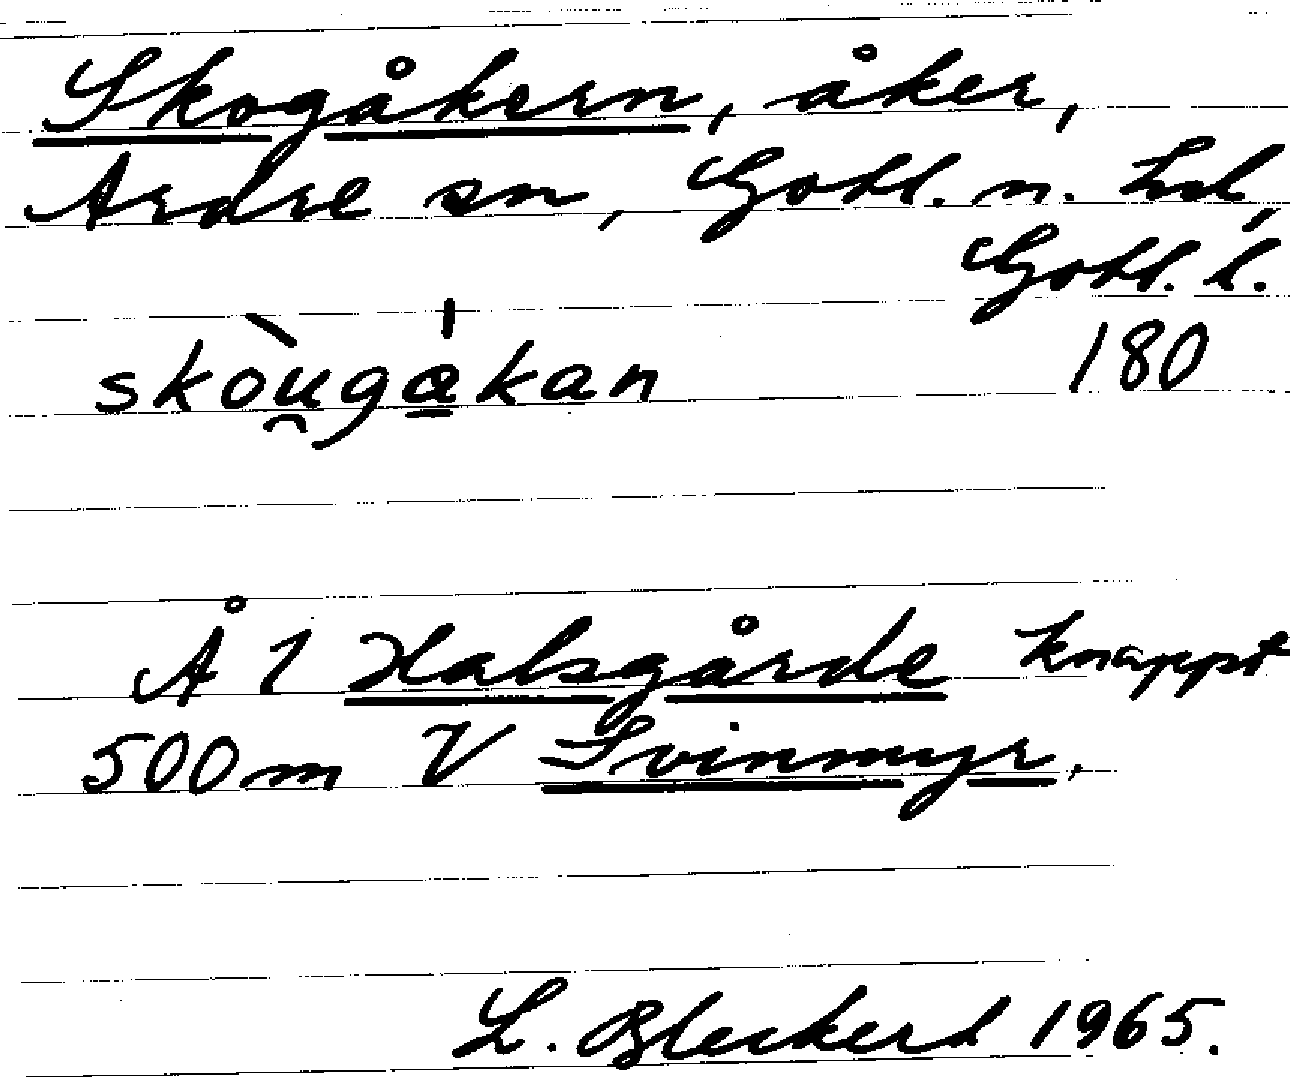 Skogåkern, åker,
Ardre sn, Gotl. n. hd,
Gotl. l.
skòu̯gåkan 180
Å 1 Halsgårde knappt
500 m V Svinmyr.
L. Bleckert 1965.